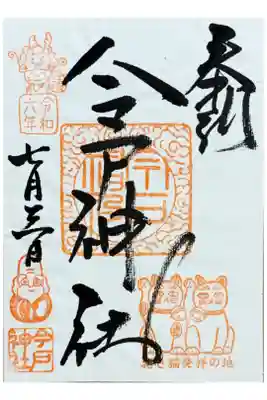 奉拝
今戸神社
今戸神社
招き猫発祥の地
令和六年
七月三日
今戸神社